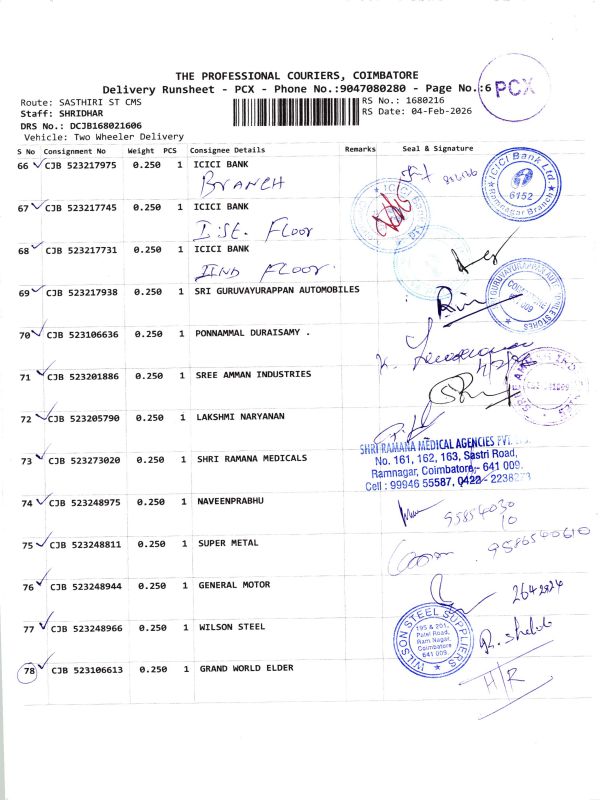 THE PROFESSIONAL COURIERS, COIMBATORE
Delivery Runsheet - PCX - Phone No.:9047080280 - Page No.:6
PCX
Route: SASTHIRI ST CMS
RS No.: 1680216
Staff: SHRIDHAR
RS Date: 04-Feb-2026
DRS No.: DCJB168021606
Vehicle: Two Wheeler Delivery
S No Consignment No Weight PCS Consignee Details Remarks Seal & Signature
66 CJB 523217975 0.250 1 ICICI BANK
BRANCH
ICICI Bank Ltd
6152
Ramnagar Branch
67 CJB 523217745 0.250 1 ICICI BANK
I St. FLOOR
68 CJB 523217731 0.250 1 ICICI BANK
IIND FLOOR
69 CJB 523217938 1 SRI GURUVAYURAPPAN AUTOMOBILES
70 CJB 523106636 0.250 1 PONNAMMAL DURAISAMY .
71 CJB 523201886 0.250 1 SREE AMMAN INDUSTRIES
72 CJB 523205790 0.250 1 LAKSHMI NARYANAN
73 CJB 523273020 0.250 1 SHRI RAMANA MEDICALS
SHRI RAMANA MEDICAL AGENCIES PVT
No. 161, 162, 163, Sastri Road,
Ramnagar, Coimbatore - 641 009.
Cell : 99946 55587, 0422-
74 CJB 523248975 0.250 1 NAVEENPRABHU
95854030
10
75 CJB 523248811 0.250 1 SUPER METAL
9586500610
76 CJB 523248944 0.250 1 GENERAL MOTOR
77 CJB 523248966 0.250 1 WILSON STEEL
WILSON STEEL SUPPLIERS
195 & 201,
Patel Road,
Ram Nagar,
Coimbatore
641 009
78 CJB 523106613 0.250 1 GRAND WORLD ELDER
H/R